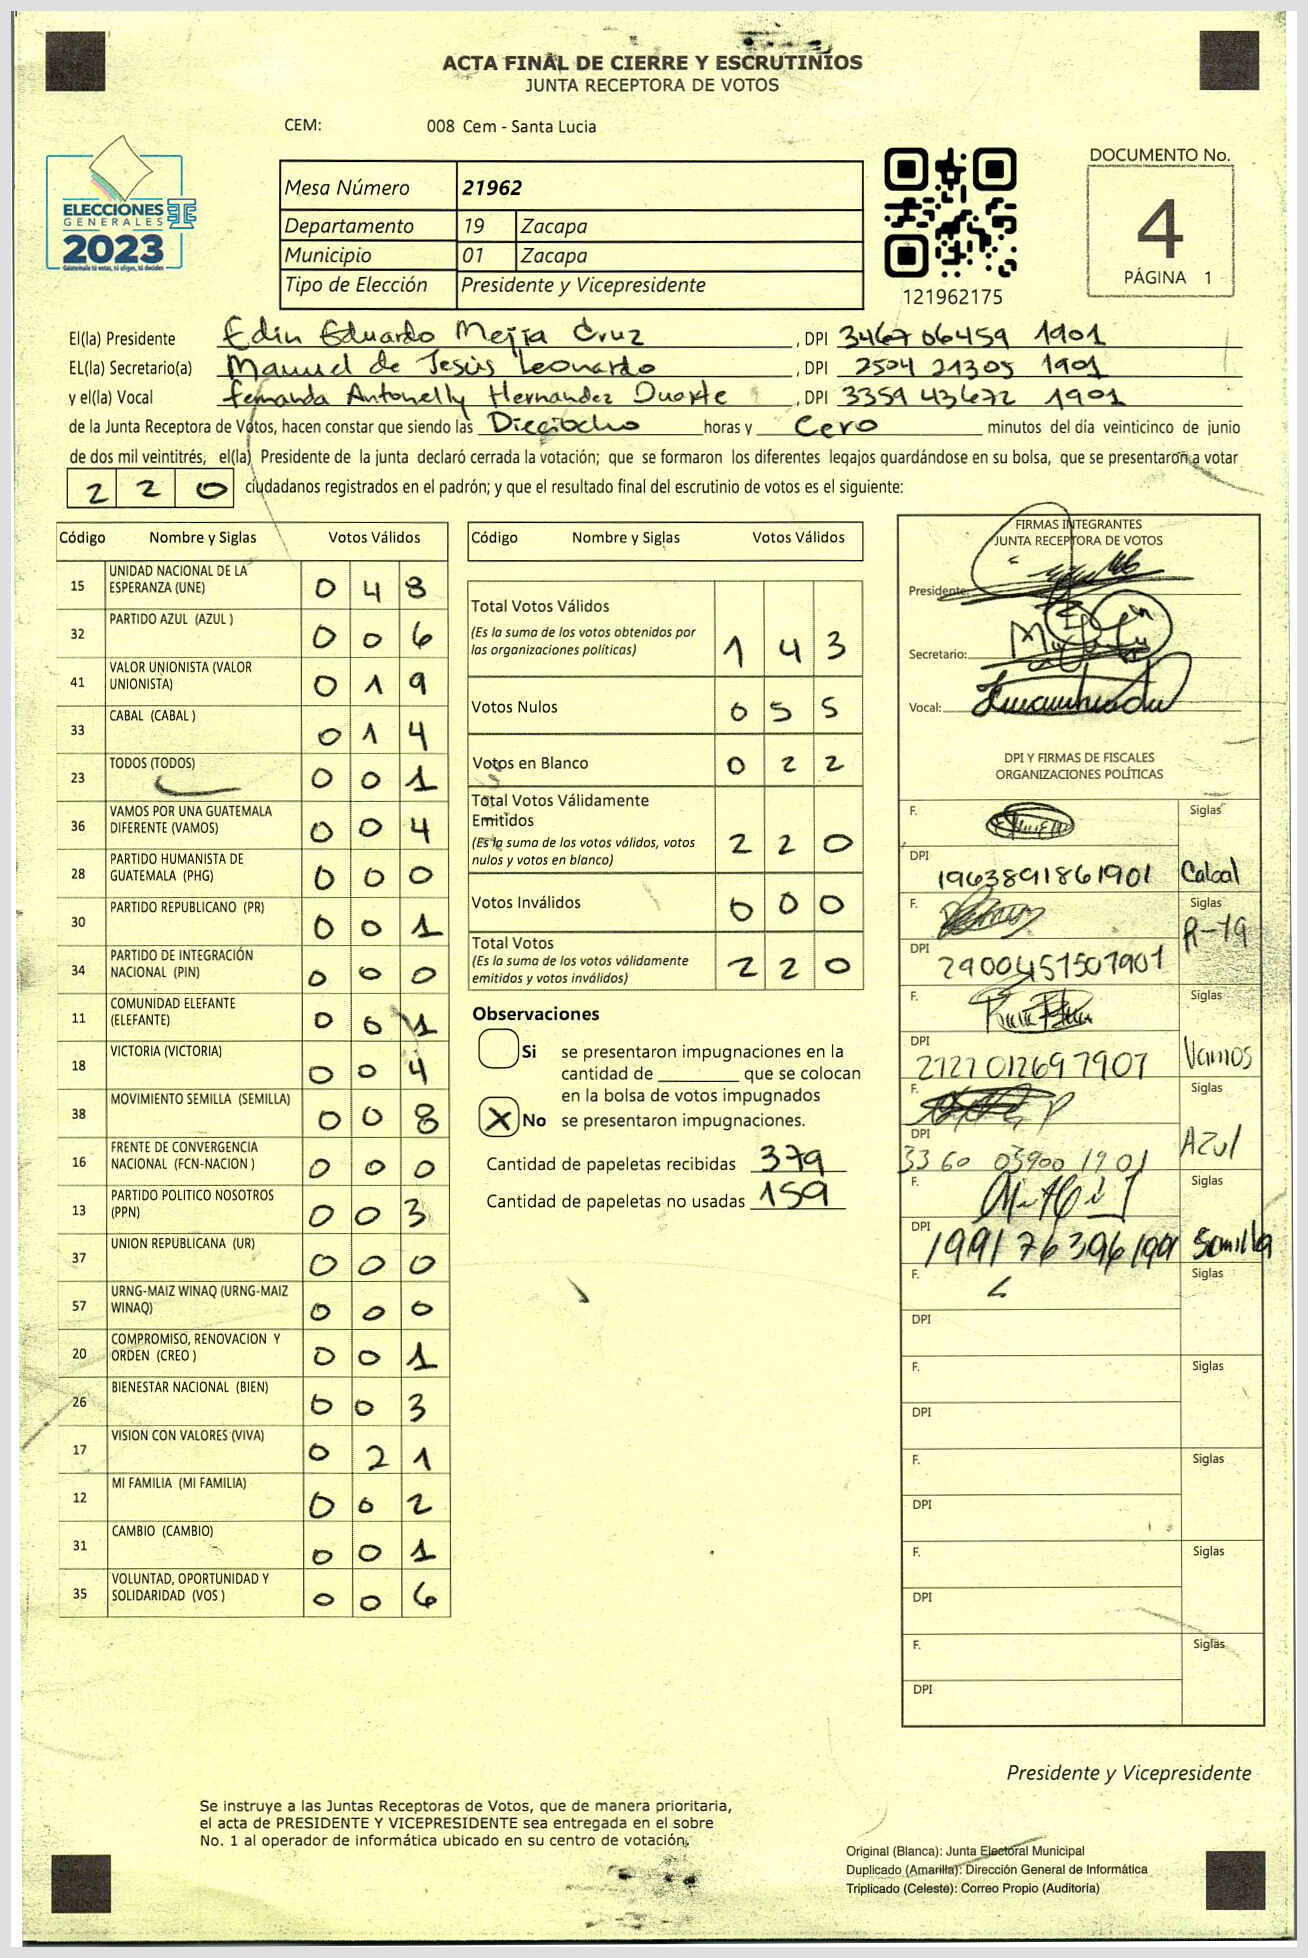 ACTA FINAL DE CIERRE Y ESCRUTINIOS
JUNTA RECEPTORA DE VOTOS
CEM: 008 Cem - Santa Lucia
ELECCIONES
GENERALES
2023
Guatemala tú votas, tú eliges, tú decides
Mesa Número 21962
Departamento 19 Zacapa
Municipio 01 Zacapa
Tipo de Elección Presidente y Vicepresidente
121962175
DOCUMENTO No.
4
PÁGINA 1
El(la) Presidente Edin Eduardo Mejía Cruz , DPI 3467 06459 1901
EL(la) Secretario(a) Manuel de Jesús Leonardo , DPI 2504 21305 1901
y el(la) Vocal Fernanda Antonelly Hernandez Duarte , DPI 3359 43672 1901
de la Junta Receptora de Votos, hacen constar que siendo las Dieciocho horas y Cero minutos del día veinticinco de junio
de dos mil veintitrés, el(la) Presidente de la junta declaró cerrada la votación; que se formaron los diferentes legajos guardándose en su bolsa, que se presentaron a votar
2 2 0 ciudadanos registrados en el padrón; y que el resultado final del escrutinio de votos es el siguiente:
Código Nombre y Siglas Votos Válidos
15 UNIDAD NACIONAL DE LA ESPERANZA (UNE) 0 4 8
32 PARTIDO AZUL (AZUL ) 0 0 6
41 VALOR UNIONISTA (VALOR UNIONISTA) 0 1 9
33 CABAL (CABAL ) 0 1 4
23 TODOS (TODOS) 0 0 1
36 VAMOS POR UNA GUATEMALA DIFERENTE (VAMOS) 0 0 4
28 PARTIDO HUMANISTA DE GUATEMALA (PHG) 0 0 0
30 PARTIDO REPUBLICANO (PR) 0 0 1
34 PARTIDO DE INTEGRACIÓN NACIONAL (PIN) 0 0 0
11 COMUNIDAD ELEFANTE (ELEFANTE) 0 0 1
18 VICTORIA (VICTORIA) 0 0 4
38 MOVIMIENTO SEMILLA (SEMILLA) 0 0 8
16 FRENTE DE CONVERGENCIA NACIONAL (FCN-NACION ) 0 0 0
13 PARTIDO POLITICO NOSOTROS (PPN) 0 0 3
37 UNION REPUBLICANA (UR) 0 0 0
57 URNG-MAIZ WINAQ (URNG-MAIZ WINAQ) 0 0 0
20 COMPROMISO, RENOVACION Y ORDEN (CREO ) 0 0 1
26 BIENESTAR NACIONAL (BIEN) 0 0 3
17 VISION CON VALORES (VIVA) 0 2 1
12 MI FAMILIA (MI FAMILIA) 0 0 2
31 CAMBIO (CAMBIO) 0 0 1
35 VOLUNTAD, OPORTUNIDAD Y SOLIDARIDAD (VOS ) 0 0 6
Código Nombre y Siglas Votos Válidos
Total Votos Válidos
(Es la suma de los votos obtenidos por
las organizaciones políticas) 1 4 3
Votos Nulos 0 5 5
Votos en Blanco 0 2 2
Total Votos Válidamente
Emitidos
(Es la suma de los votos válidos, votos
nulos y votos en blanco) 2 2 0
Votos Inválidos 0 0 0
Total Votos
(Es la suma de los votos válidamente
emitidos y votos inválidos) 2 2 0
Observaciones
Si se presentaron impugnaciones en la
cantidad de ________ que se colocan
en la bolsa de votos impugnados
X No se presentaron impugnaciones.
Cantidad de papeletas recibidas 379
Cantidad de papeletas no usadas 159
FIRMAS INTEGRANTES
JUNTA RECEPTORA DE VOTOS
Presidente:
Secretario:
Vocal:
DPI Y FIRMAS DE FISCALES
ORGANIZACIONES POLÍTICAS
F. Siglas
DPI 1963891861901 Cabal
F. Siglas
DPI 2900451501901 R-19
F. Siglas
DPI 2127012697907 Vamos
F. Siglas
DPI 3360 03900 1901 AZul
F. Siglas
DPI 199176396199 Semilla
F. Siglas
DPI
F. Siglas
DPI
F. Siglas
DPI
F. Siglas
DPI
F. Siglas
DPI
Presidente y Vicepresidente
Se instruye a las Juntas Receptoras de Votos, que de manera prioritaria,
el acta de PRESIDENTE Y VICEPRESIDENTE sea entregada en el sobre
No. 1 al operador de informática ubicado en su centro de votación.
Original (Blanca): Junta Electoral Municipal
Duplicado (Amarilla): Dirección General de Informática
Triplicado (Celeste): Correo Propio (Auditoría)